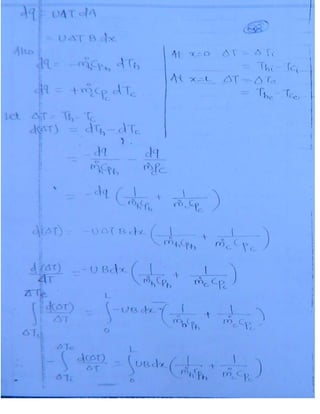 dq = UΔT dA
= UΔT B dx
Also
dq = -ṁh Cph dTh
dq = +ṁc Cpc dTc
At x=0 ΔT = ΔTi
= Thi - Tci
At x=L ΔT = ΔTo
= Tho - Tco
Let ΔT = Th - Tc
d(ΔT) = dTh - dTc
= -dq/(ṁh Cph) - dq/(ṁc Cpc)
= -dq (1/(ṁh Cph) + 1/(ṁc Cpc))
d(ΔT) = -UΔT B dx (1/(ṁh Cph) + 1/(ṁc Cpc))
d(ΔT)/ΔT = -U B dx (1/(ṁh Cph) + 1/(ṁc Cpc))
∫ΔTi^ΔTo d(ΔT)/ΔT = ∫0^L -U B dx (1/(ṁh Cph) + 1/(ṁc Cpc))
-∫ΔTi^ΔTo d(ΔT)/ΔT = ∫0^L U B dx (1/(ṁh Cph) + 1/(ṁc Cpc))